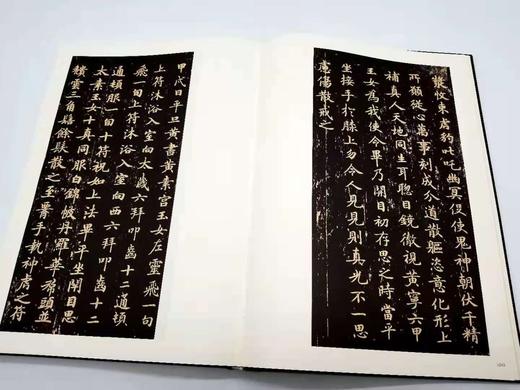 收束虎豹叱吒幽冥役使鬼神朝伏千精
所願從心萬事剋成分道散軀恣意化形上
補真人天地同生耳聰目鏡徹視黃寧六甲
玉女為我使令畢乃開目初存思之時當平
坐接手於膝上勿令人見見則真光不一思
慮傷散戒之
甲戌日平旦黃書黃素宮玉女左靈飛一旬
上符沐浴入室向太歲六拜叩齒十二通頓
飛一旬上符沐浴入室向西六拜叩齒十二
通頓服一旬十符祝如上法畢平坐閉目思
太素玉女十真同服白錦帔丹羅華裙頭並
頹雲三角髻餘髮散之至腰手執神虎之符